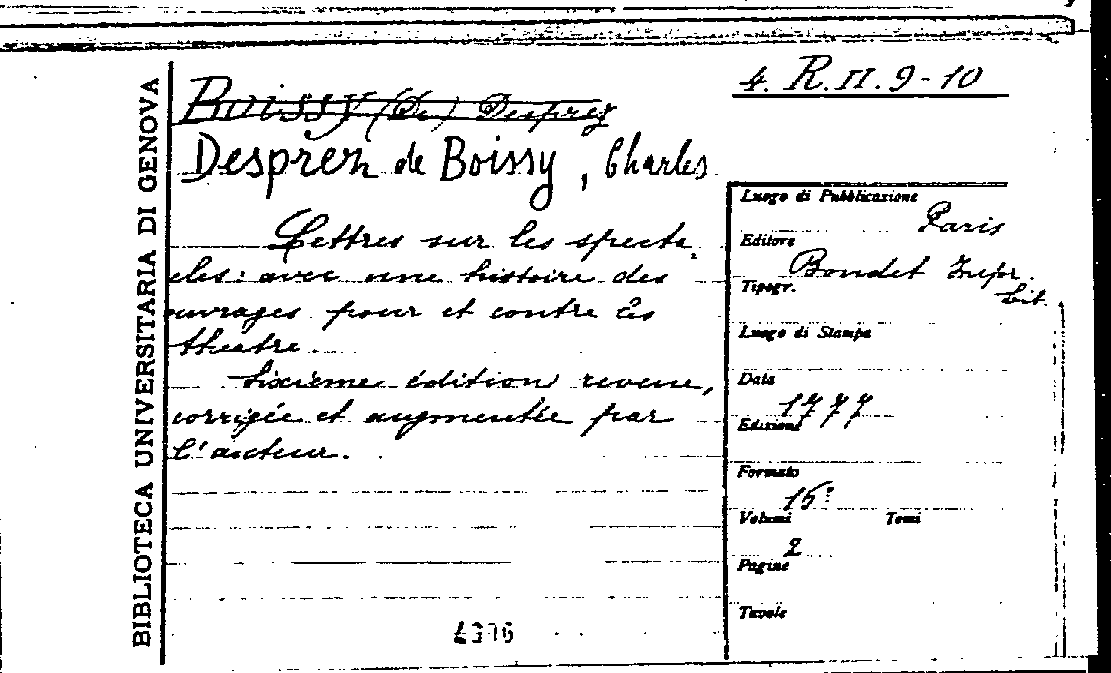 BIBLIOTECA UNIVERSITARIA DI GENOVA
4. R. II. 9-10
Boissy (de) Desprez
Desprez de Boissy, Charles
Lettres sur les specta
cles: avec une histoire des
ouvrages pour et contre les
theatre.
Sixième édition revue,
corrigée et augmentée par
l'auteur.
Luogo di Pubblicazione
Paris
Editore
Boudet Impr.
Lit.
Tipogr.
Luogo di Stampa
Data
1777
Edizione
Formato
16°
Volumi Tomi
2
Pagine
Tavole